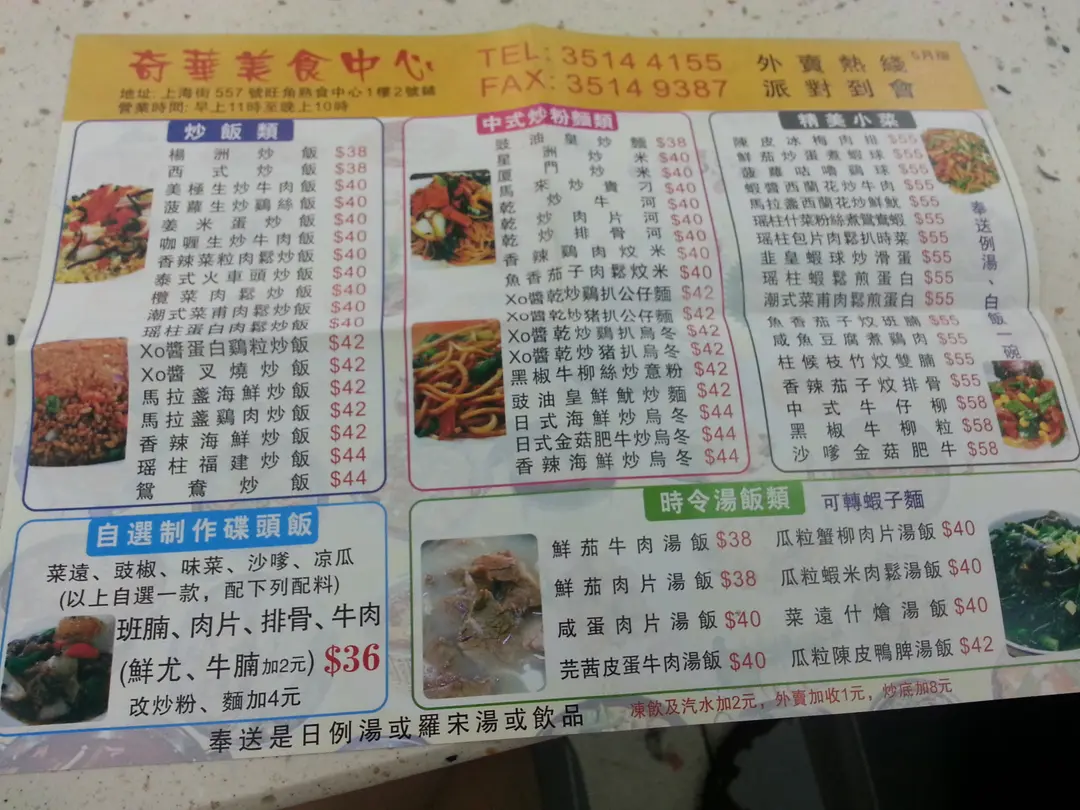 奇華美食中心
TEL: 3514 4155
外賣熱綫
5月版
地址: 上海街557號旺角熟食中心1樓2號鋪
FAX: 3514 9387
派對到會
營業時間: 早上11時至晚上10時
炒飯類
楊洲炒飯 $38
西式炒飯 $38
美極生炒牛肉飯 $40
菠蘿生炒鷄絲飯 $40
姜米蛋炒飯 $40
咖喱生炒牛肉飯 $40
香辣菜粒肉鬆炒飯 $40
泰式火車頭炒飯 $40
欖菜肉鬆炒飯 $40
潮式菜甫肉鬆炒飯 $40
瑶柱蛋白肉鬆炒飯 $40
Xo醬蛋白鷄粒炒飯 $42
Xo醬叉燒炒飯 $42
馬拉盞海鮮炒飯 $42
馬拉盞鷄肉炒飯 $42
香辣海鮮炒飯 $42
瑶柱福建炒飯 $44
鴛鴦炒飯 $44
中式炒粉麵類
豉油皇炒麵 $38
星洲炒米 $40
厦門炒米 $40
馬來炒貴刁 $40
乾炒牛河 $40
乾炒肉片河 $40
乾炒排骨河 $40
香辣鷄肉炆米 $40
魚香茄子肉鬆炆米 $40
Xo醬乾炒鷄扒公仔麵 $42
Xo醬乾炒猪扒公仔麵 $42
Xo醬乾炒鷄扒烏冬 $42
Xo醬乾炒猪扒烏冬 $42
黑椒牛柳絲炒意粉 $42
豉油皇鮮魷炒麵 $42
日式海鮮炒烏冬 $44
日式金菇肥牛炒烏冬 $44
香辣海鮮炒烏冬 $44
精美小菜
陳皮冰梅肉排 $55
鮮茄炒蛋煮蝦球 $55
菠蘿咕嚕鷄球 $55
蝦醬西蘭花炒牛肉 $55
馬拉盞西蘭花炒鮮魷 $55
瑶柱什菜粉絲煮鴛鴦蝦 $55
瑶柱包片肉鬆扒時菜 $55
韭皇蝦球炒滑蛋 $55
瑶柱蝦鬆煎蛋白 $55
潮式菜甫肉鬆煎蛋白 $55
魚香茄子炆斑腩 $55
咸魚豆腐煮鷄肉 $55
柱候枝竹炆雙腩 $55
香辣茄子炆排骨 $55
中式牛仔柳 $58
黑椒牛柳粒 $58
沙嗲金菇肥牛 $58
奉送例湯、白飯一碗
自選制作碟頭飯
菜遠、豉椒、味菜、沙嗲、凉瓜
(以上自選一款，配下列配料)
班腩、肉片、排骨、牛肉
(鮮尤、牛腩加2元) $36
改炒粉、麵加4元
時令湯飯類
可轉蝦子麵
鮮茄牛肉湯飯 $38
鮮茄肉片湯飯 $38
咸蛋肉片湯飯 $40
芫茜皮蛋牛肉湯飯 $40
瓜粒蟹柳肉片湯飯 $40
瓜粒蝦米肉鬆湯飯 $40
菜遠什燴湯飯 $40
瓜粒陳皮鴨脾湯飯 $42
凍飲及汽水加2元，外賣加收1元，炒底加8元
奉送是日例湯或羅宋湯或飲品